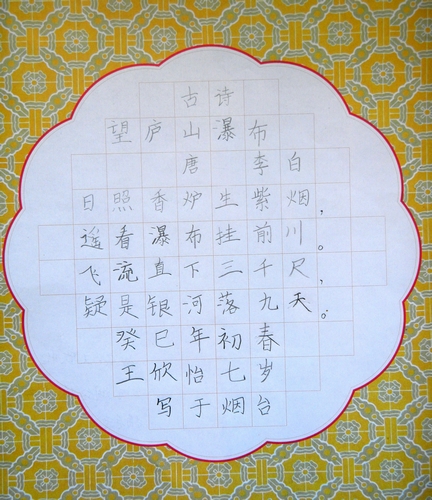 古诗
望庐山瀑布
唐 李白
日照香炉生紫烟，
遥看瀑布挂前川。
飞流直下三千尺，
疑是银河落九天。
癸巳年初春
王欣怡七岁
写于烟台